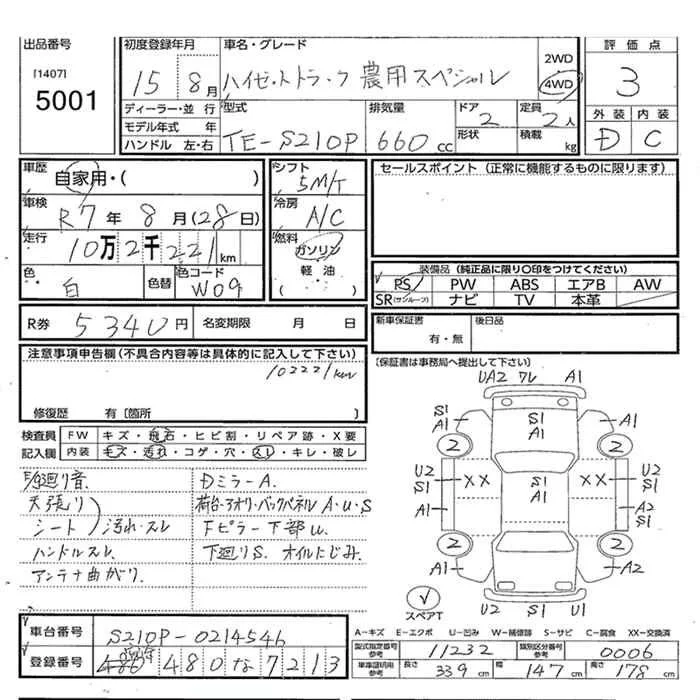 出品番号
[1407]
5001
初度登録年月
15 8月
車名・グレード
ハイゼットトラック 農用スペシャル
2WD
4WD
評価点
3
外装 内装
D C
ディーラー・並行
モデル年式 年
ハンドル 左・右
型式
TE-S210P
排気量
660cc
ドア
2
形状
定員
2人
積載
kg
車歴
自家用・( )
車検
R7年 8月(28日)
走行
10万2千221km
色
白
色替
色コード
W09
シフト
5M/T
冷房
A/C
燃料
ガソリン
軽油
( )
セールスポイント (正常に機能するものに限ります)
装備品 (純正品に限り○印をつけてください)
PS PW ABS エアB AW
SR(サンルーフ) ナビ TV 本革
R券 5340円 名変期限 月 日
新車保証書
有・無
後日品
(保証書は事務局へ提出して下さい)
注意事項申告欄(不具合内容等は具体的に記入して下さい)
102221km
修復歴 有〔箇所 〕
検査員 FW キズ・飛石・ヒビ割・リペア跡・X要
記入欄 内装 キズ・汚れ・コゲ・穴・スレ・キレ・破レ
廻り音
天張り
シート 汚れ・スレ
ハンドルスレ
アンテナ曲がり.
Dミラー A.
荷台・アオリ・バックパネル A・U・S
Fピラー下部 U.
下廻りS. オイルにじみ.
UA2 ワレ A1
S1
A1
S1
A1
A1
2
2
U2
S1
A1
XX
S1
A1
XX
U2
S1
A2
S1
A1
2
2
A1
A2
U2 S1 U1
スペアT
車台番号 S210P-0214546
登録番号 480 な 7213
A-キズ E-エクボ U-凹み W-補修跡 S-サビ C-腐食 XX-交換済
型式指定番号
参考
11232
類別区分番号
参考
0006
車庫証明用
参考
長さ
339cm
幅
147cm
高さ
178cm